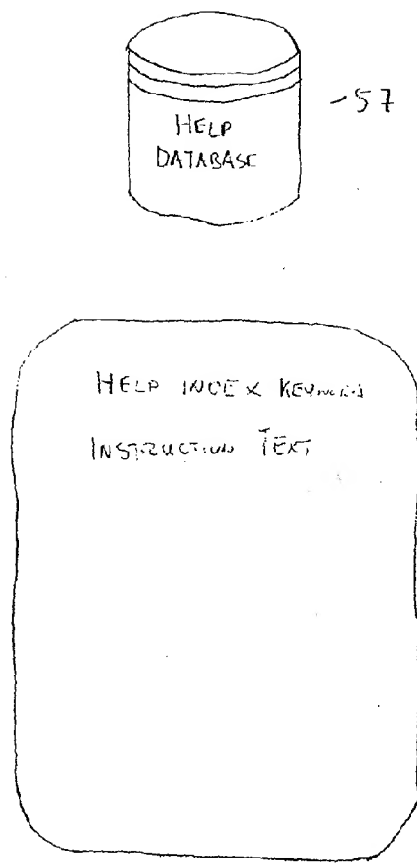 HELP
DATABASE
-57
HELP INDEX KEYWORD
INSTRUCTION TEXT